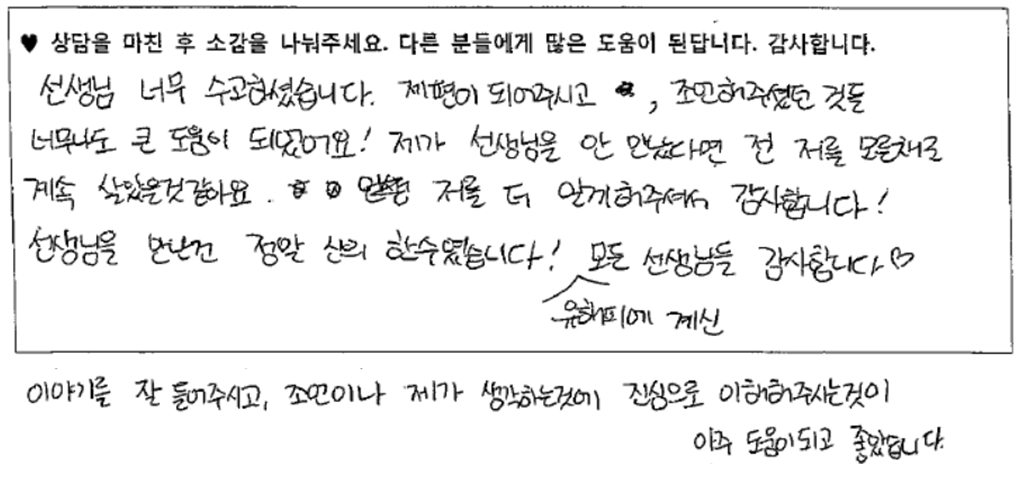 ♥ 상담을 마친 후 소감을 나눠주세요. 다른 분들에게 많은 도움이 된답니다. 감사합니다.
선생님 너무 수고하셨습니다. 제편이 되어주시고 , 조언해주셨던 것들
너무나도 큰 도움이 되었어요! 제가 선생님을 안 만났다면 전 저를 모른채로
계속 살았을것같아요. 저를 더 알게해주셔서 감사합니다!
선생님을 만난건 정말 신의 한수였습니다! 모든 선생님들 감사합니다♡
유해피에 계신
이야기를 잘 들어주시고, 조언이나 제가 생각하는것에 진심으로 이해해주시는것이
아주 도움이되고 좋았습니다.